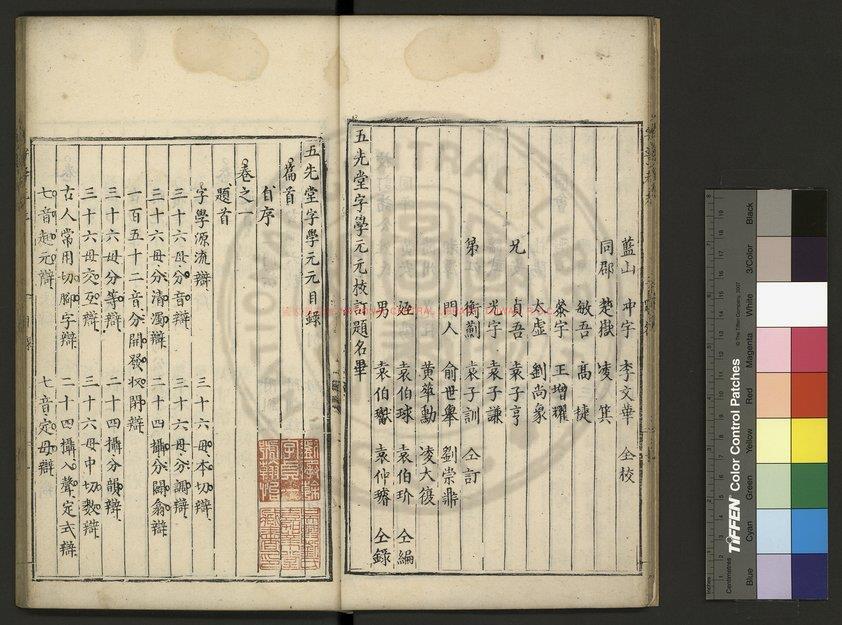 藍山 冲字 李文華 仝校
同郡 楚嶽 凌箕
敏吾 高棲
叅字 王增耀
太虛 劉尚象
兄 貞吾 袁子亨
光字 袁子謙
第 衡薊 袁子訓 仝訂
門人 俞世舉 劉崇鼎
黃華勳 凌大復
姪 袁伯球 袁伯玠 仝編
男 袁伯 袁仲 仝錄
五先堂字學元元校訂題名畢
五先堂字學元元目錄
篇首
自序
卷之一
題首
字學源流辯 三十六母本切辯
三十六母分音辯 三十六母分調辯
三十六母分清濁辯 二十四攝分闢翕辯
一百五十二音分開發收閉辯
三十六母分等辯 二十四攝分韻辯
三十六母交互辯 三十六母中切數辯
古人常用切腳字辯 二十四攝入聲定式辯
七音起元辯 七音定母辯
TIFFEN Color Control Patches
© The Tiffen Company, 2007
Blue
Cyan
Green
Yellow
Red
Magenta
White
3/Color
Black
Inches
Centimetres